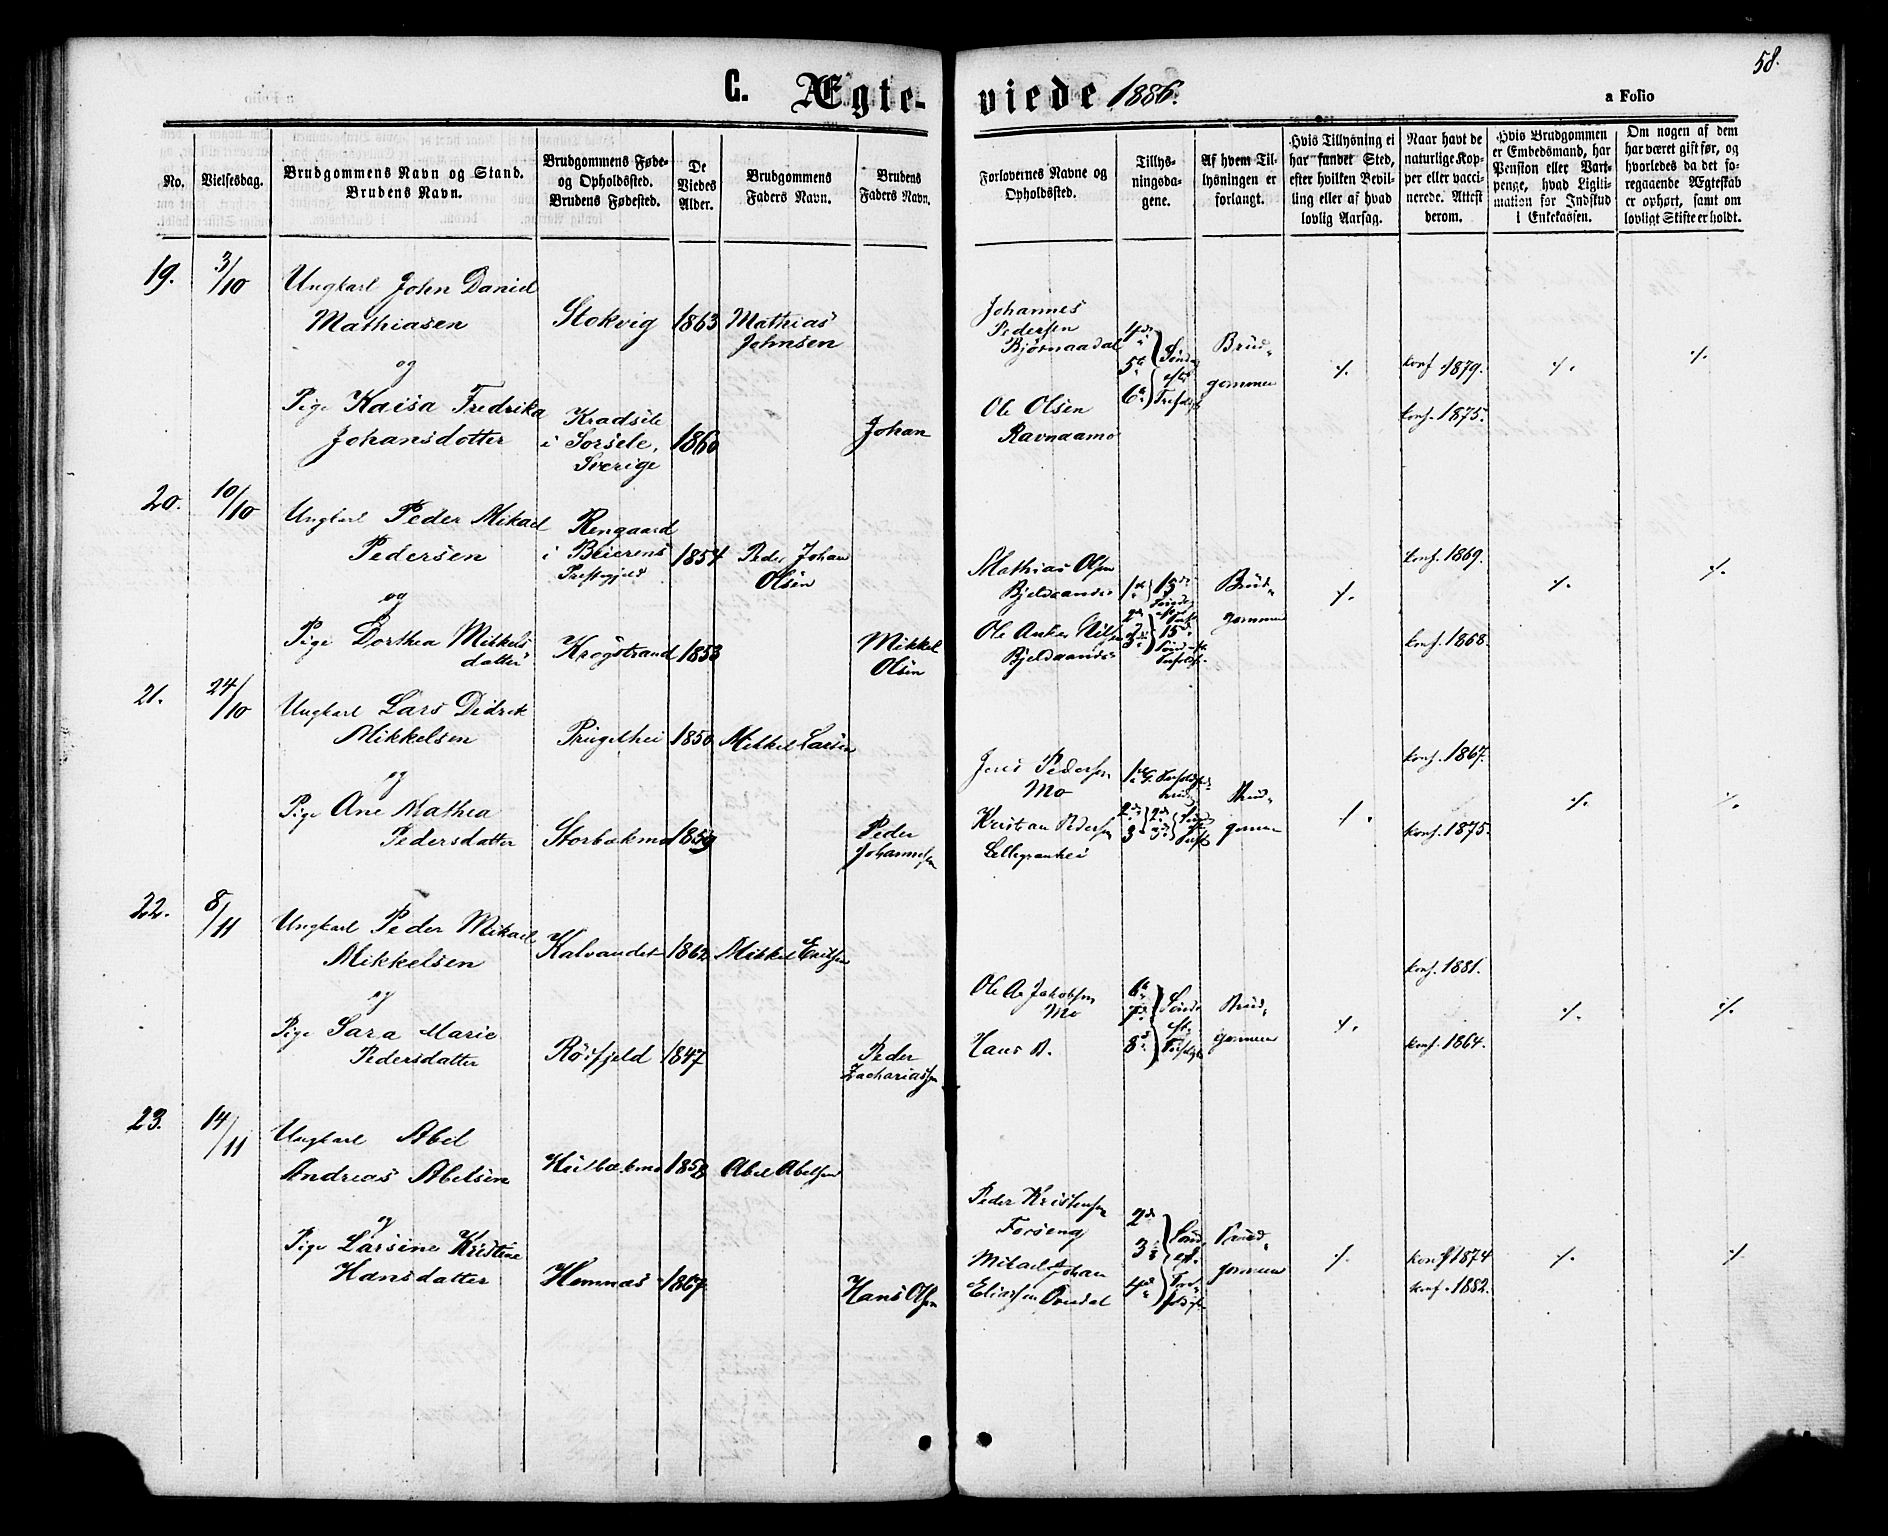 58.
C. Ægte-viede 1886.
a Folio
No.
Vielsesdag.
Brudgommens Navn og Stand.
Brudens Navn.
Brudgommens Føde-
og Opholdssted.
Brudens Fødested.
De
Viedes
Alder.
Brudgommens
Faders Navn.
Brudens
Faders Navn.
Forlovernes Navne og
Opholdssted.
Tillys-
ningsda-
gene.
Af hvem Til-
lysningen er
forlangt.
Hvis Tillysning ei
har fundet Sted,
efter hvilken Bevil-
ling eller af hvad
lovlig Aarsag.
Naar havt de
naturlige Kop-
per eller vacci-
nerede. Attest
derom.
Hvis Brudgommen
er Embedsmand, har
Pension eller Vart-
penge, hvad Ligiti-
mation for Indskud
i Enkekassen.
Om nogen af dem
har været gift før, og
hvorledes da det fo-
regaaende Ægteskab
er ophørt, samt om
lovligt Skifte er holdt.
19. 3/10
Ungkarl John Daniel
Mathiasen
Stokvig 1863 Mathias
Johnsen
og
Pige Kaisa Fredrika
Johansdotter
Kradsele
i Sorsele,
Sverige
1860
Johan
Johannes
Pedersen
Bjørnaadal
Ole Olsen
Ravnaamo
4de
5te
6te
Brud-
gommen
./.
konf. 1879.
konf. 1875.
./.
./.
20. 10/10
Ungkarl Peder Mikael
Pedersen
Rengaard
i Beierens
Præstegjeld
1854 Peder Johan
Olsen
og
Pige Dorthea Mikkels-
datter
Krogstrand 1853
Mikkel
Olsen
Mathias Olsen
Ole Anker Nilsen
Brud-
gommen
./.
konf. 1869.
konf. 1868.
./.
./.
21. 24/10
Ungkarl Lars Didrik
Mikkelsen
1850 Mikkel Larsen
og
Pige Ane Mathea
Pedersdatter
Storbækmo 1859
Peder
Johannesen
Jens Pedersen
Mo
Kristian Pedersen
Brud-
gommen
./.
konf. 1867.
konf. 1875.
./.
./.
22. 8/11
Ungkarl Peder Mikael
Mikkelsen
Kalvandet 1862 Mikkel Eriksen
og
Pige Sara Marie
Pedersdatter
Røsfjeld 1847
Peder
Zachariassen
Ole A. Jakobsen
Mo
Hans A.
6te
7de
8de
Brud-
gommen
./.
konf. 1881.
konf. 1864.
./.
./.
23. 14/11
Ungkarl Abel
Andreas Abelsen
1858 Abel Abelsen
og
Pige Larsine Kristine
Hansdatter
Hemnæs 1867
Hans Olsen
Peder Kristensen
Forseng
Mikael Johan
Eliassen
2de
3die
4de
Brud-
gommen
./.
konf. 1874
konf. 1882.
./.
./.